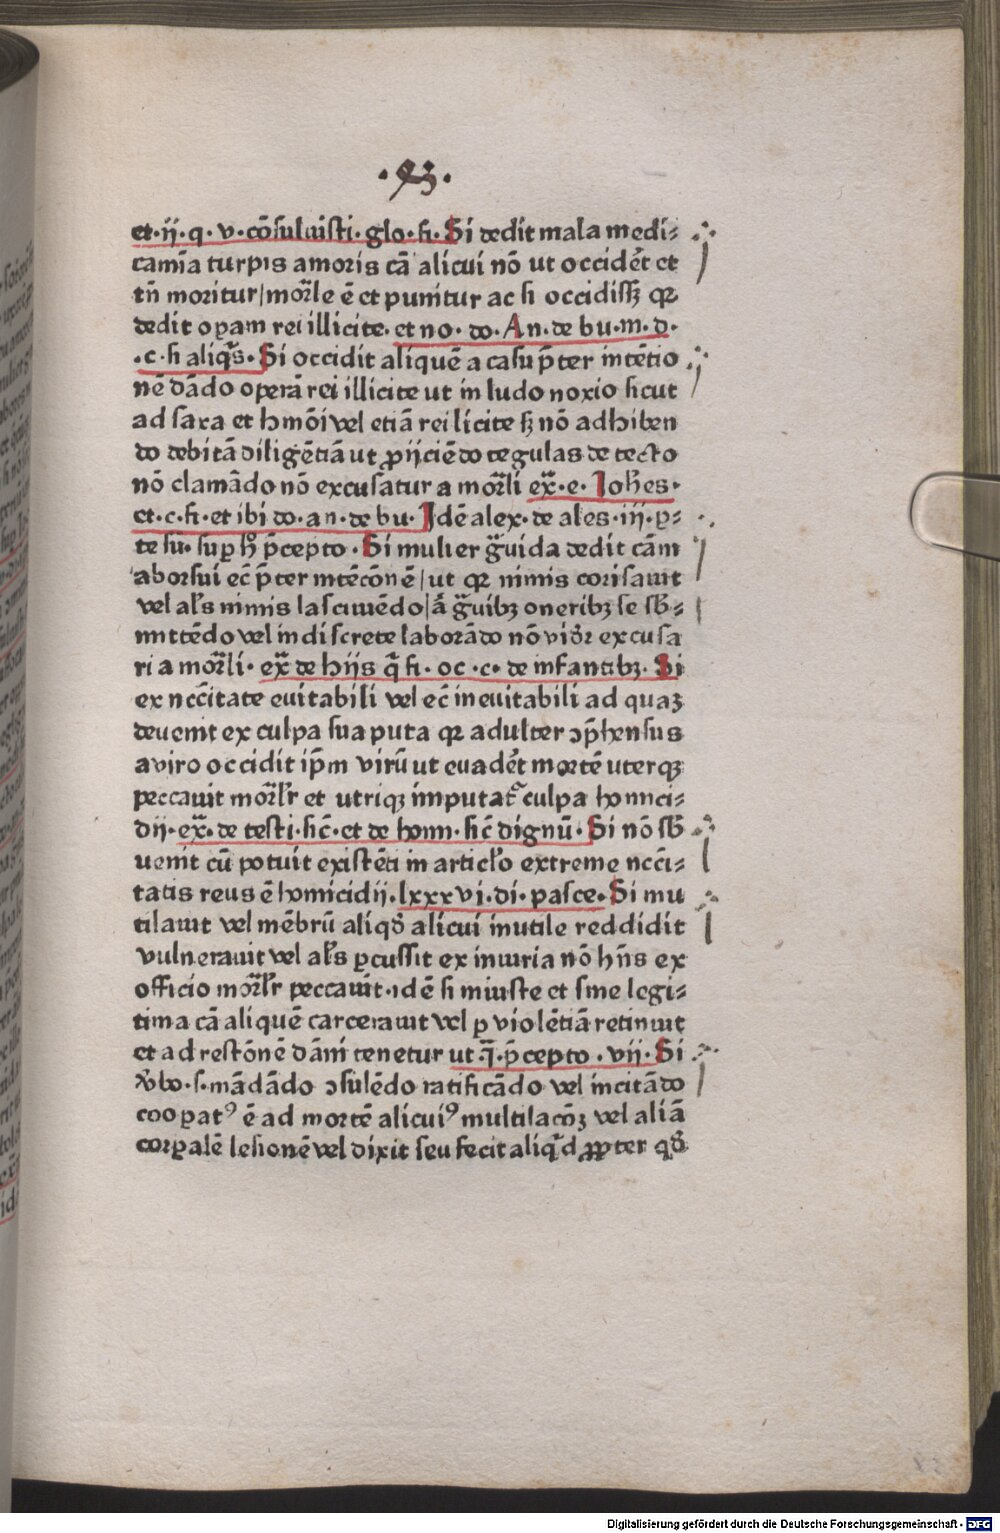 ·93·
et·ij·q·v·cõsuluisti·glo·fi·Si dedit mala medi⸗
camĩa turpis amoris cã alicui nõ ut occidẽt et
tñ moritur/morl̃e ẽ et punitur ac si occidissꝫ qꝛ
dedit opam rei illicite·et no·do·An·de bu·m·d·
·c·si aliqs̃·Si occidit aliquẽ a casu p̃ter intẽtio
nẽ dãdo operã rei illicite ut in ludo noxio sicut
ad saxa et hmõi vel etiã rei licite sꝫ nõ adhiben
do debitã diligẽtiã ut ꝓijciẽdo tegulas de tecto
nõ clamãdo nõ excusatur a morl̃i ex̃·e·Iohẽs·
et·c·fi·et ibi do·an·de bu·Idẽ alex·de ales·iij·p⸗
te sũ·suꝑ h̃ p̃cepto·Si mulier g̃uida dedit cãm
aborsui ec̃ p̃ter intẽcõnẽ/ut qꝛ nimis corisauit
vel al̃s nimis lasciuiẽdo/ã g̃uibꝫ oneribꝫ se sb̃⸗
mittẽdo vel indiscrete laborãdo nõ vidr̃ excusa
ri a morl̃i·ex̃ de hijs q̃ fi·oc·c·de infantibꝫ·Si
ex ncc̃itate euitabili vel ec̃ ineuitabili ad quaꝫ
deuenit ex culpa sua puta qꝛ adulter ↄp̃hensus
a viro occidit ip̃m virũ ut euadẽt mortẽ uterqꝫ
peccauit morl̃r et utriqꝫ imputat᷑ culpa homici⸗
dij·ex̃·de testi·sic̃·et de homi·sic̃ dignũ·Si nõ sb̃
uenit cũ potuit existẽti in articl̃o extreme ncc̃i⸗
tatis reus ẽ homicidij·lxxxvi·di·pasce·Si mu
tilauit vel mẽbrũ aliqd̃ alicui inutile reddidit
vulnerauit vel al̃s ꝑcussit ex iniuria nõ hñs ex
officio morl̃r peccauit·idẽ si iniuste et sine legi⸗
tima cã aliquẽ carcerauit vel ꝑ violẽtiã retinuit
et ad restõnẽ dãni tenetur ut q̃·p̃cepto·vij·Si
v̾bo·s·mãdãdo ↄsulẽdo ratificãdo vel incitãdo
cooꝑatꝰ ẽ ad mortẽ alicuiꝰ multilacõꝫ vel aliã
corꝑalẽ lesionẽ vel dixit seu fecit aliqd̃ ꝓpter qd̃
Digitalisierung gefördert durch die Deutsche Forschungsgemeinschaft - DFG